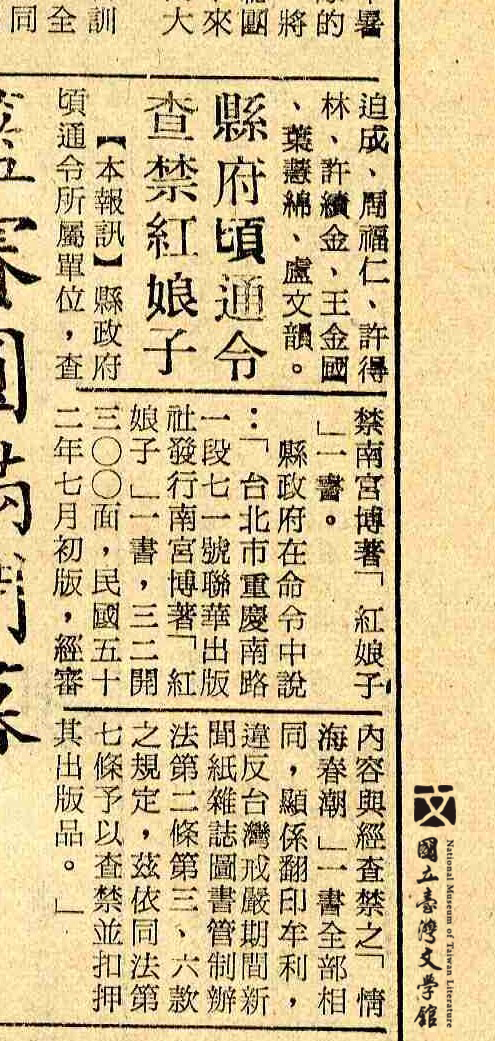 迫成、周福仁、許得
林、許續金、王金國
、葉慧綿、盧文韻。
縣府頃通令
查禁紅娘子
【本報訊】縣政府
頃通令所屬單位，查
禁南宮博著「紅娘子
」一書。
縣政府在命令中說
：「台北市重慶南路
一段七一號聯華出版
社發行南宮博著「紅
娘子」一書，三二開
三〇〇面，民國五十
二年七月初版，經審
內容與經查禁之「情
海春潮」一書全部相
同，顯係翻印牟利，
違反台灣戒嚴期間新
聞紙雜誌圖書管制辦
法第二條第三、六款
之規定，茲依同法第
七條予以查禁並扣押
其出版品。」
國立臺灣文學館
National Museum of Taiwan Literature